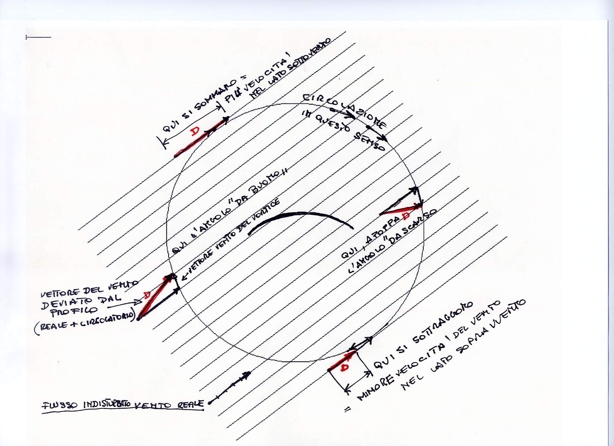 QUI SI SOMMANO =
PIÙ VELOCITÀ!
NEL LATO SOTTOVENTO
D
CIRCOLAZIONE
IN QUESTO SENSO
QUI L'ANGOLO "DA BUONO"
VETTORE VENTO DEL VERTICE
D
QUI, A POPPA
L'ANGOLO "DA SCARSO
VETTORE DEL VENTO
DEVIATO DAL
PROFILO
(REALE + CIRCOLATORIO)
D
D
QUI SI SOTTRAGGONO
= MINORE VELOCITÀ! DEL VENTO
NEL LATO SOPRAVVENTO
FLUSSO INDISTURBATO VENTO REALE